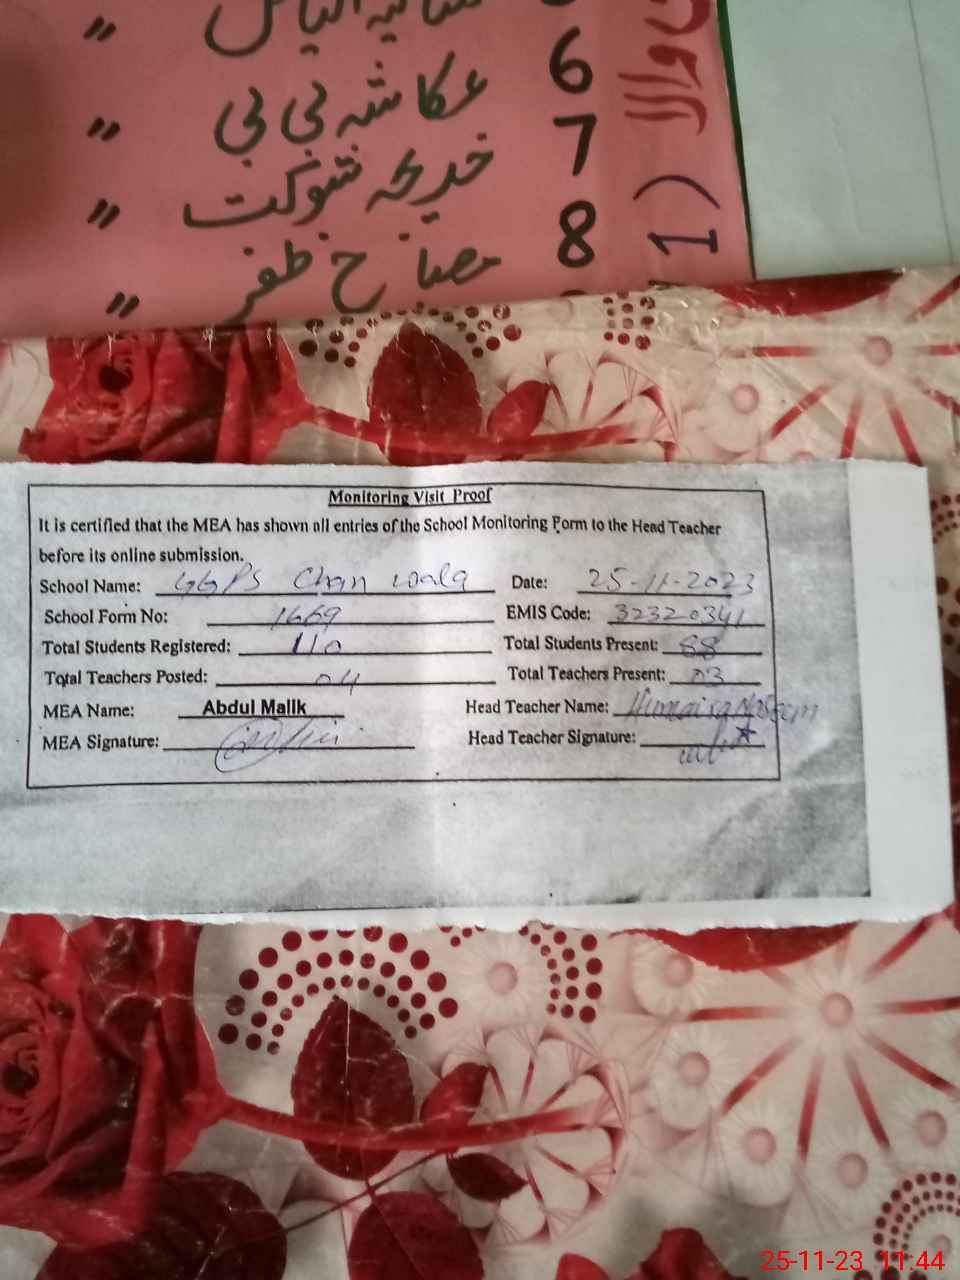 "
6 عکاشہ بی بی "
7 خدیجہ شوکت "
8 مصباح ظفر "
"
(1
Monitoring Visit Proof
It is certified that the MEA has shown all entries of the School Monitoring Form to the Head Teacher
before its online submission.
School Name: GGPS Chan wala Date: 25-11-2023
School Form No: 1669 EMIS Code: 32320341
Total Students Registered: 110 Total Students Present: 88
Total Teachers Posted: 04 Total Teachers Present: 03
MEA Name: Abdul Malik Head Teacher Name: Humaira
MEA Signature: Head Teacher Signature:
25-11-23 11:44